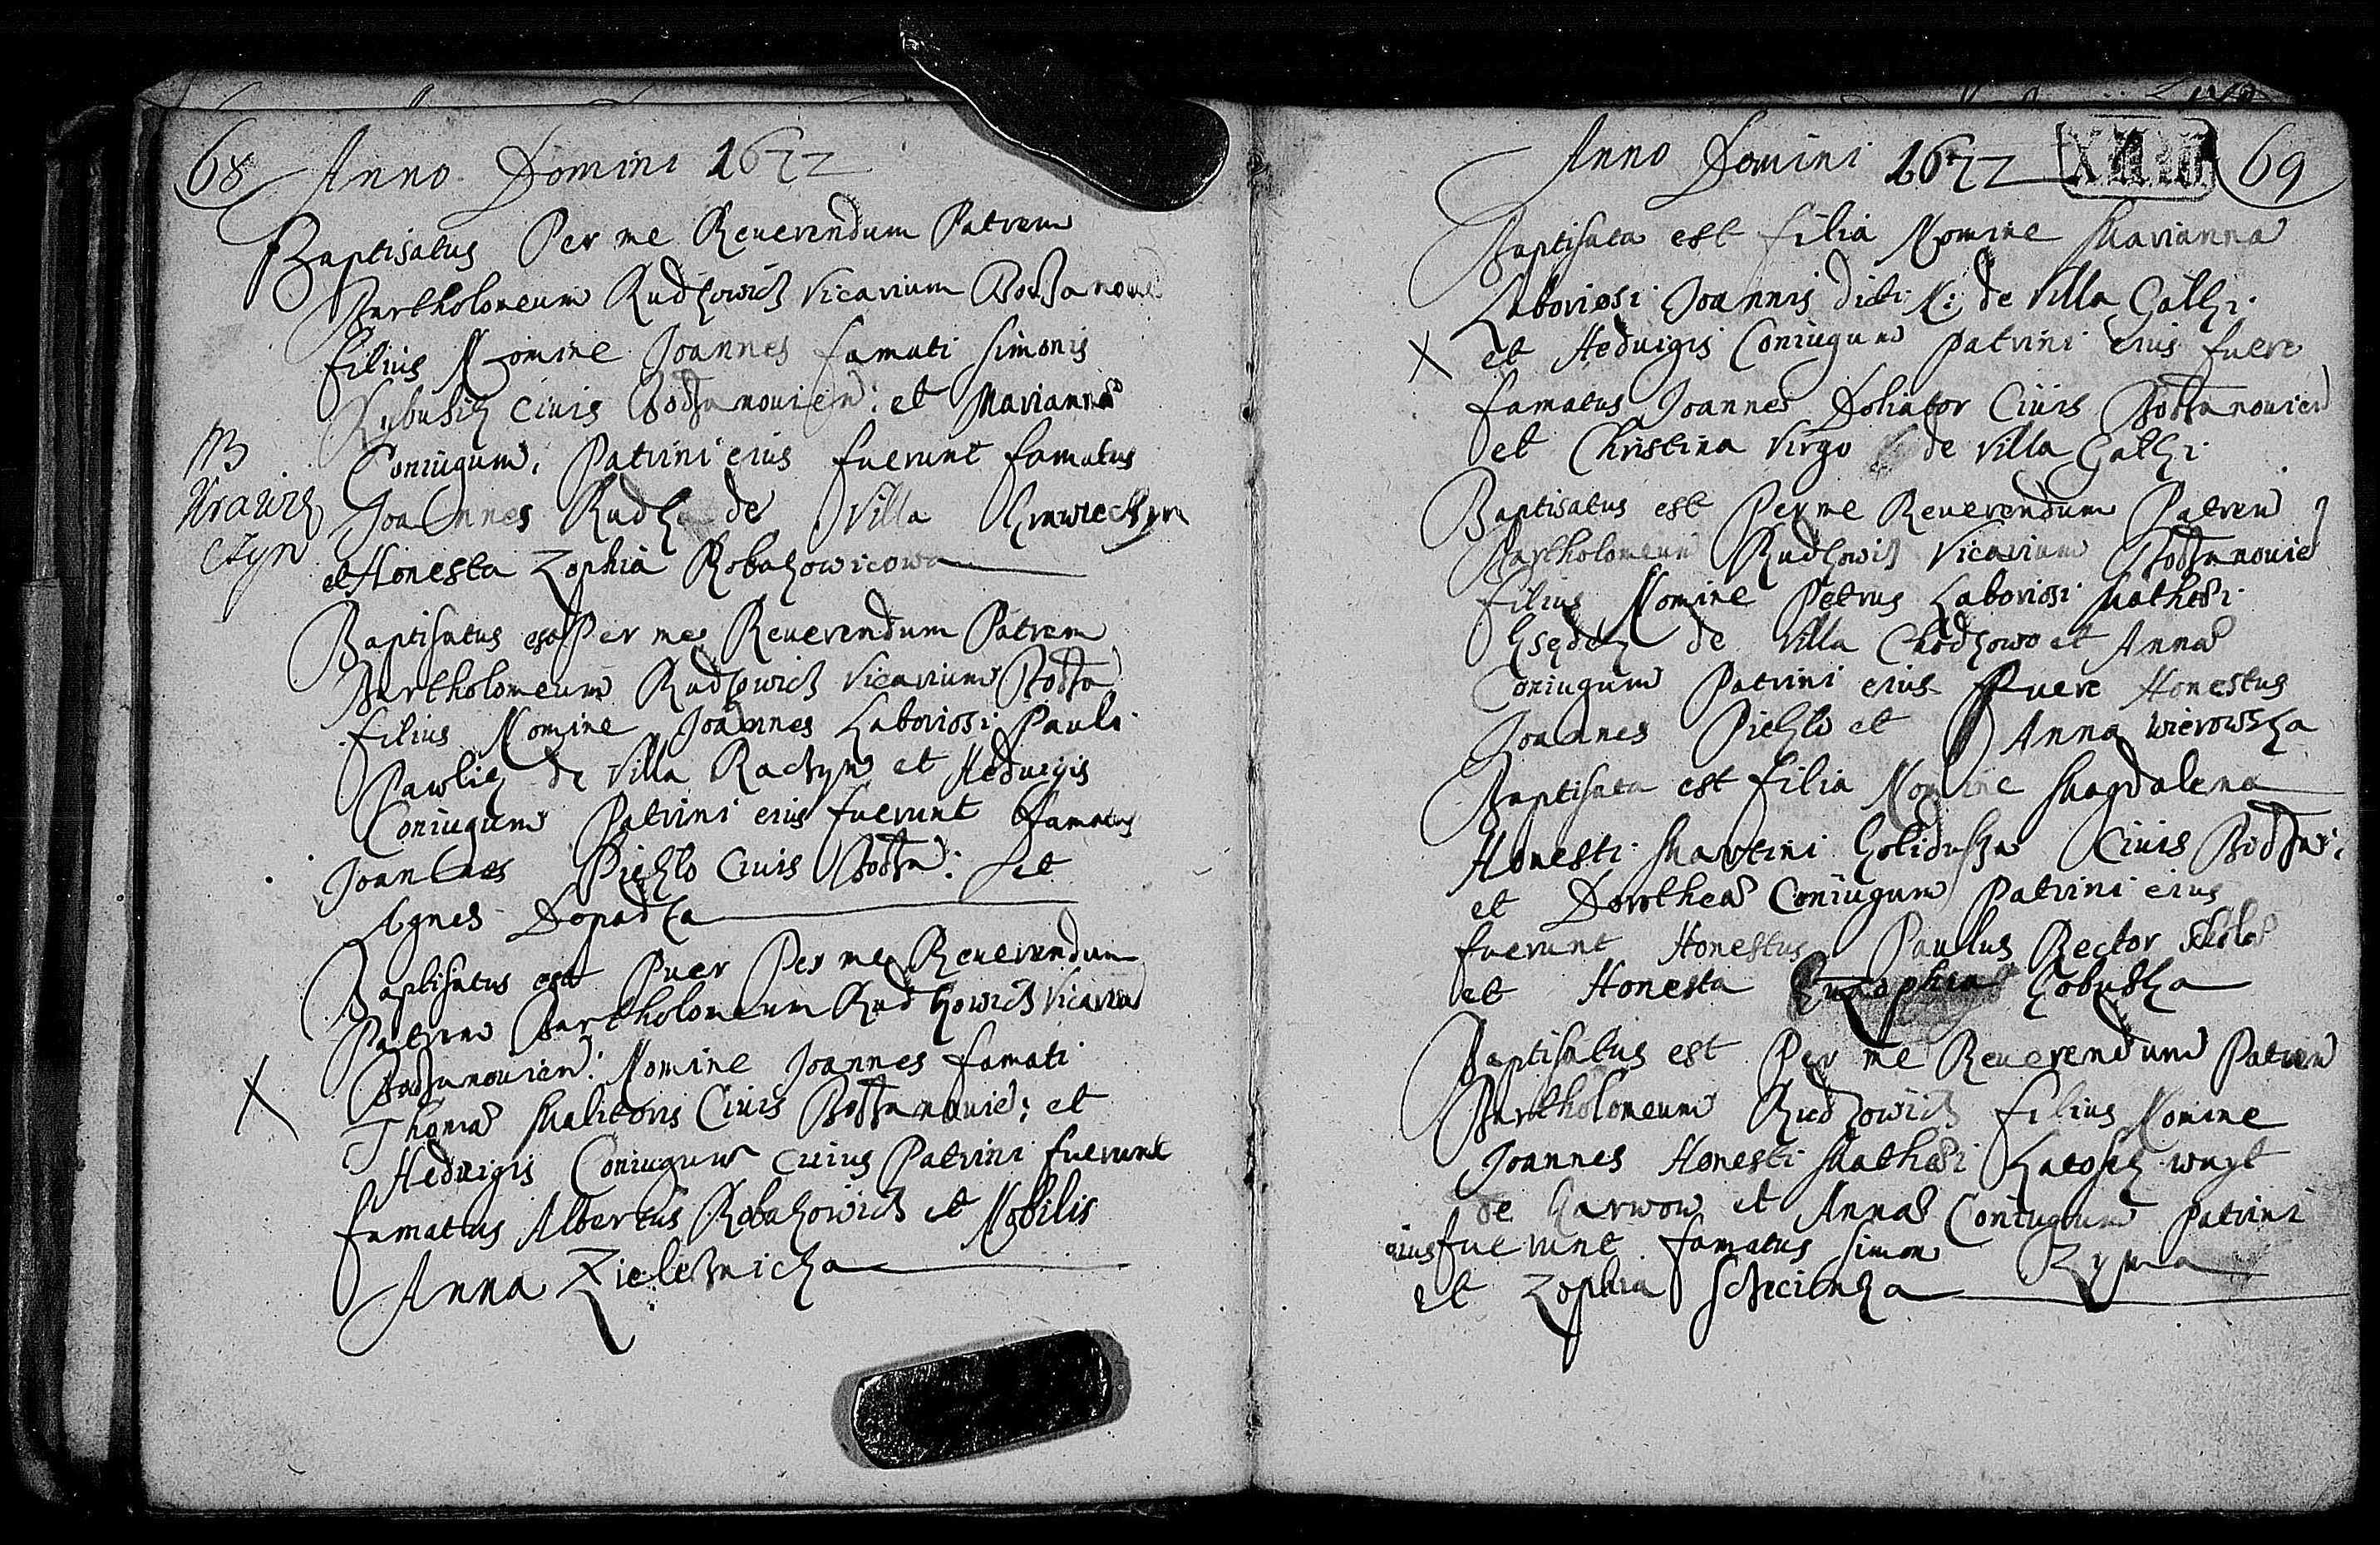 68 Anno Domini 1677
Baptisatus Per me Reuerendum Patrem
Bartholomeum Rudkowicz Vicarium Bodzanouie
filius Nomine Joannes famati Simonis
Kybusik Ciuis Bodzanouien: et Mariannæ
Coniugum, Patrini eius fuerunt famatus
Joannes Rudka de Villa Krawieczyn
et Honesta Zophia Robakowicowa
NB
Krawie
czyn
Baptisatus est Per me Reuerendum Patrem
Bartholomeum Rudkowicz Vicarium Bodza
filius Nomine Joannes Laboriosi Pauli
Pawlik de Villa Raczyn et Heduigis
Coniugum Patrini eius fuerunt famatus
Joannes Piekło Ciuis Bodza: Et
Agnes Dopadka
Baptisatus est Puer Per me Reuerendum
Patrem Bartholomeum Rudkowicz Vicariu
Bodzanouien: Nomine Joannes famati
X Thomæ Malitoris Ciuis Bodzanouie: et
Heduigis Coniugum cuius Patrini fuerunt
famatus Albertus Robakowicz et Nobilis
Anna Zieleznicka
Anno Domini 1677 69
Baptisata est filia Nomine Marianna
Laboriosi Joannis dicti N: de Villa Gałki
X et Heduigis Coniugum patrini eius fuere
famatus Joannes Doliator Ciuis Bodzanouien
et Christina Virgo de Villa Gałki
Baptisatus est Per me Reuerendum Patrem
Bartholomeum Rudkowicz Vicarium Bodzanouie
filius Nomine Petrus Laboriosi Mathæi
de Villa Chodkowo et Annæ
Coniugum Patrini eius Fuere Honestus
Joannes Piekło et Anna Wierowska
Baptisata est filia Nomine Magdalena
Honesti Martini Goliduszka Ciuis Bodzani
et Dorotheæ Coniugum Patrini eius
fuerunt Honestus Paulus Rector Scholæ
et Honesta Zophia Kobuska
Baptisatus est Per me Reuerendum Patrem
Bartholomeum Rudkowicz filius Nomine
Joannes Honesti Mathæi Katosek wuyt
de Karwow et Annæ Coniugum Patrini
eius fuerunt famatus Simon Zyma
et Zophia Sczcionka